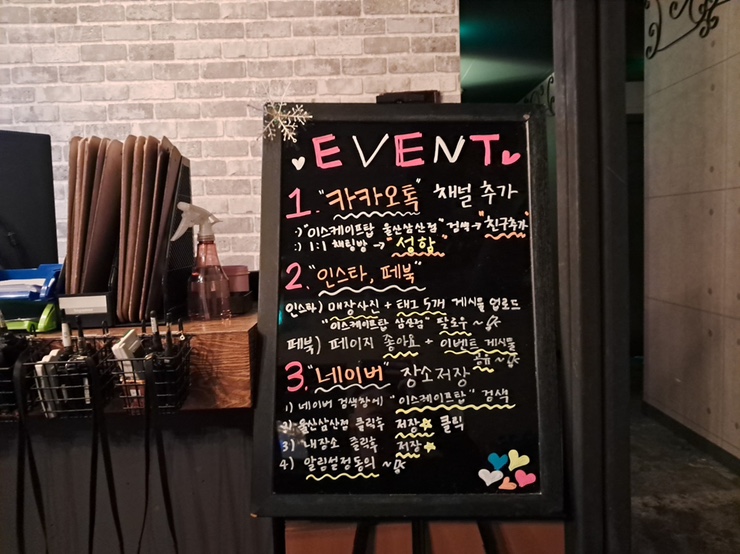 EVENT
1. "카카오톡" 채널 추가
:) "이스케이프탑 울산삼산점" 검색→"친구추가"
:) 1:1 채팅방 → "성함"
2. "인스타, 페북"
인스타) 매장사진 + 태그 5개 게시물 업로드
"이스케이프탑 삼산점" 팔로우 ~
페북) 페이지 좋아요 + 이벤트 게시물
공유 ~
3. "네이버" 장소저장
1) 네이버 검색창에 "이스케이프탑" 검색
2) 울산삼산점 클릭후 저장 클릭
3) "내장소 클릭후 저장
4) 알림설정동의 ~